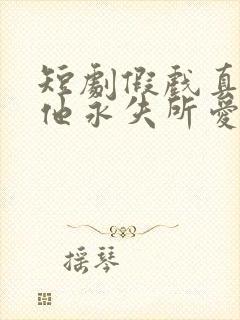 短劇假戲真
他永失所愛
摇琴